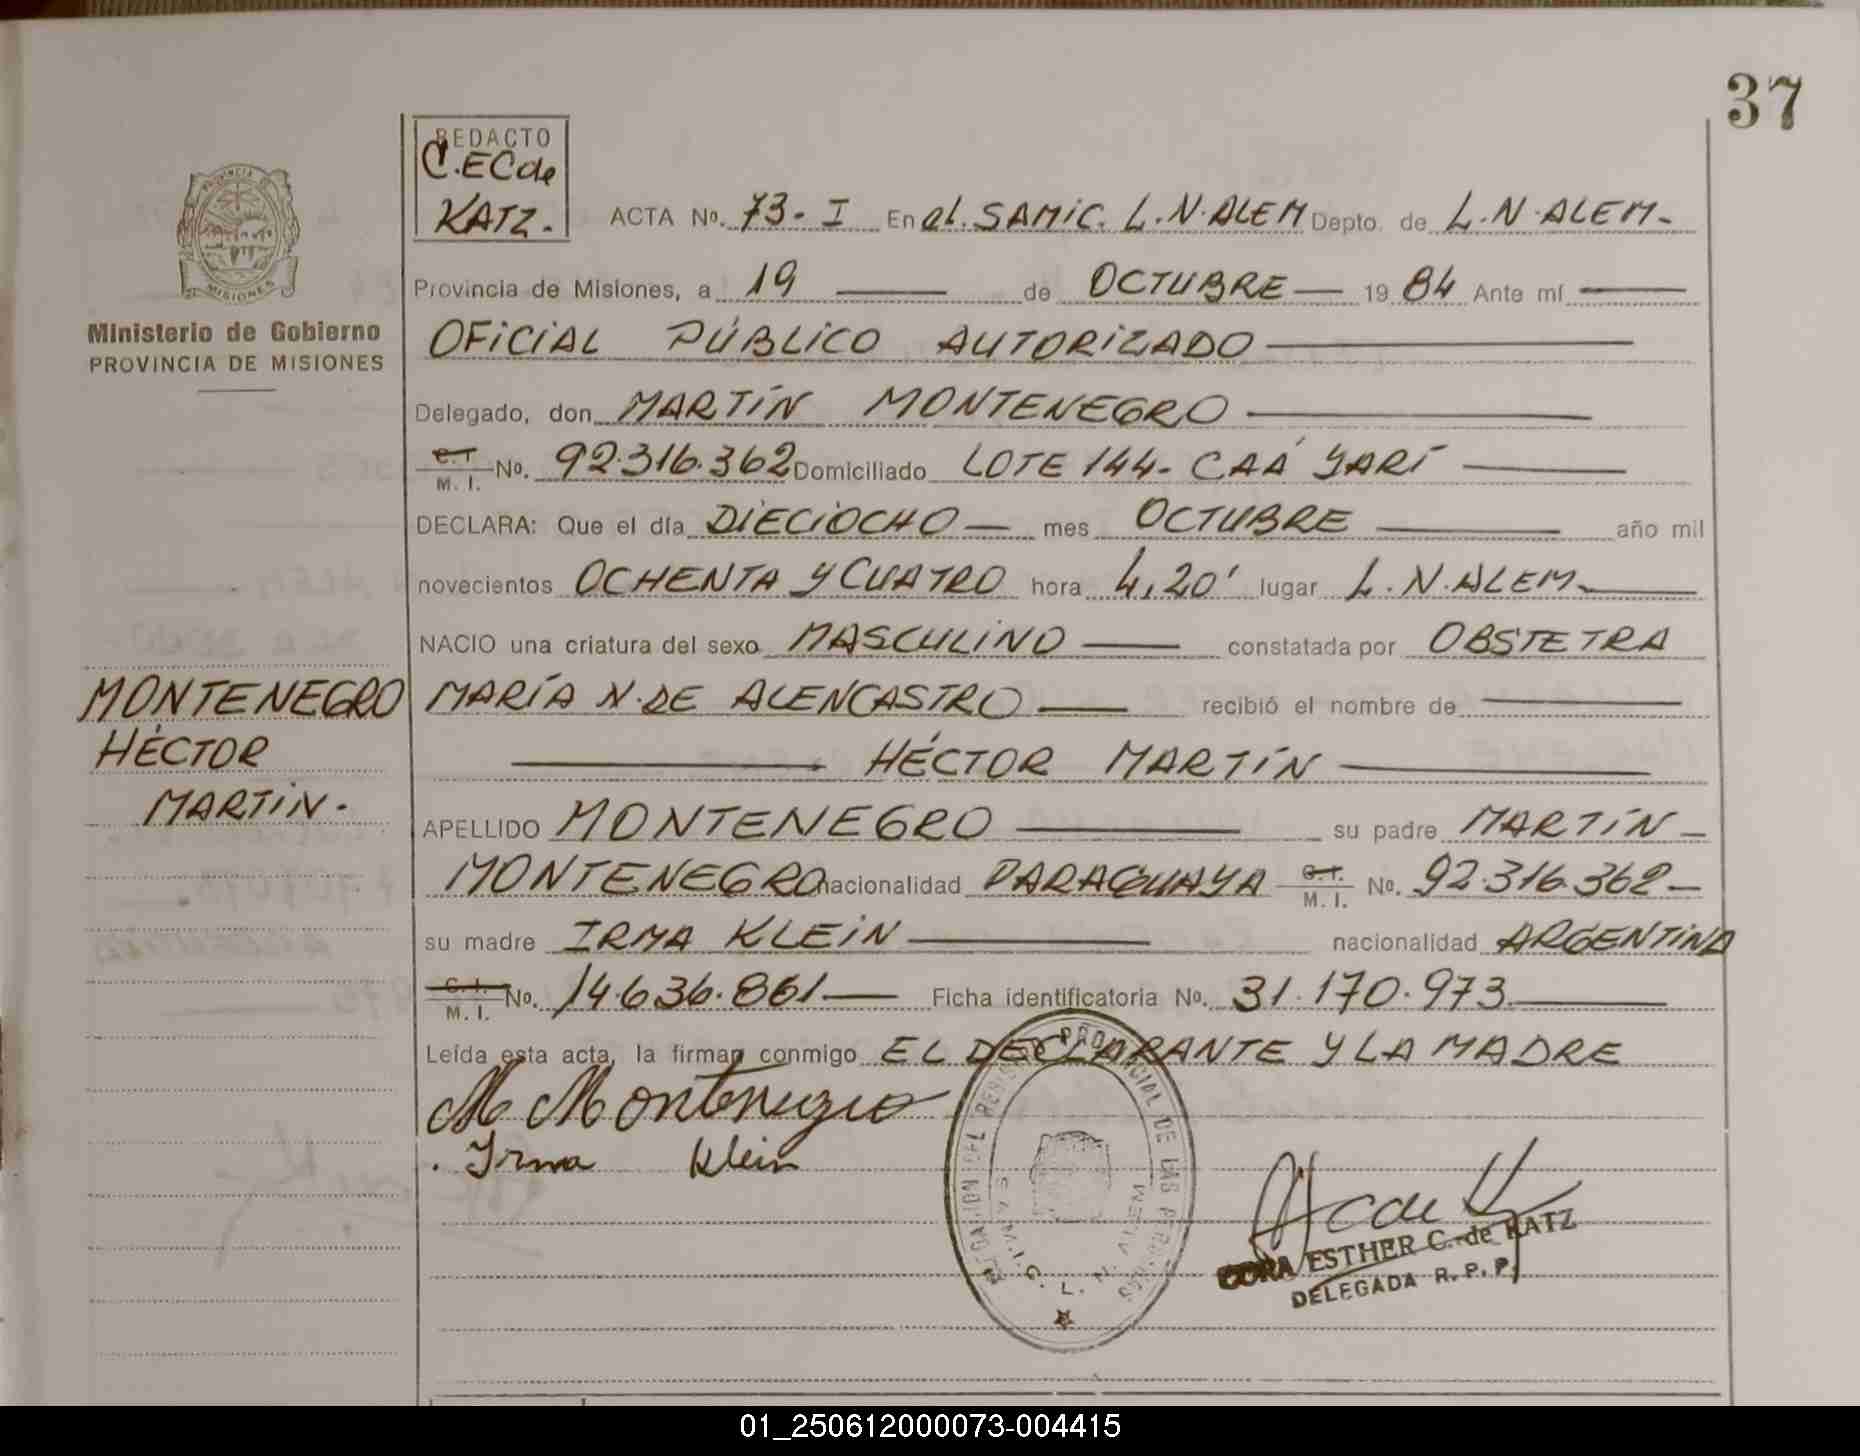 37
REDACTO
C.EC de
KATZ.
ACTA Nº. 73- I En el. SAMIC. L.N.ALEM Depto. de L.N.ALEM-
Provincia de Misiones, a 19 de OCTUBRE 19 84 Ante mí
Ministerio de Gobierno
PROVINCIA DE MISIONES
OFICIAL PÚBLICO AUTORIZADO
Delegado, don MARTÍN MONTENEGRO
C.I. M. I. Nº. 92.316.362 Domiciliado LOTE 144- CAÁ YARÍ
DECLARA: Que el día DIECIOCHO mes OCTUBRE año mil
novecientos OCHENTA Y CUATRO hora 4,20' lugar L.N.ALEM-
NACIO una criatura del sexo MASCULINO constatada por OBSTETRA
MARÍA N. DE ALENCASTRO recibió el nombre de
HÉCTOR MARTÍN
MONTENEGRO
HÉCTOR
MARTÍN.
APELLIDO MONTENEGRO su padre MARTÍN
MONTENEGRO nacionalidad PARAGUAYA C.I. M. I. Nº. 92.316.362-
su madre IRMA KLEIN nacionalidad ARGENTINA
C.I. M. I. Nº. 14.636.861 Ficha identificatoria Nº. 31.170.973
Leída esta acta, la firman conmigo EL DECLARANTE Y LA MADRE
M Montenegro
Irma Klein
REGISTRO PROVINCIAL DE LAS PERSONAS
S.A.M.I.C. L. N. ALEM
CORA ESTHER C. de KATZ
DELEGADA R. P. P.
01_250612000073-004415